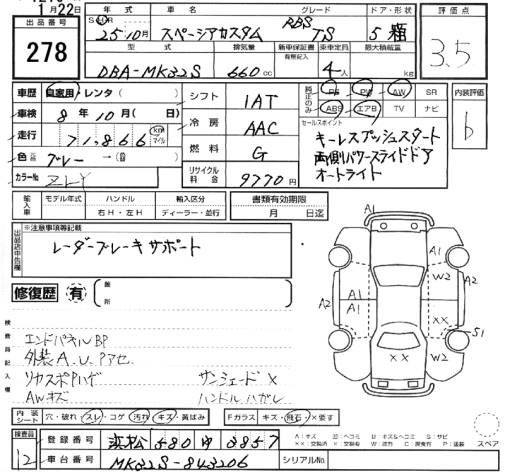 1月22日
年式 車名 グレード ドア・形状 評価点
出品番号 S・H・R RBS
278 25年10月 スペーシアカスタム TS 5 箱 3.5
型式 排気量 新車保証書 乗車定員 最大積載量
有無記入
DBA-MK32S 660cc 4人 kg
車歴 自家用・レンタ( ) シフト 1AT 純正のみ PS PW AW SR 内装評価
ABS エアB TV ナビ b
車検 8年10月( 日) 冷房 AAC セールスポイント
走行 71,866 km マイル 燃料 G キーレスプッシュスタート
両側パワースライドドア
色 グレー→( ) オートライト
カラーNo ZLY リサイクル料金 9770円
輸入車 モデル年式 ハンドル 輸入区分 書類有効期限
右H・左H ディーラー・並行 月 日迄
出品店申告欄 ※注意事項等記載
レーダーブレーキサポート
修復歴 有 箇所
検査員記入欄
エンドパネルBP
外装A.U.Pアセ
リヤスポPハゲ サンシェードX
AWキズ ハンドルハガレ
A1
A1
W2
A2 A1 A1 A2
XX S1
XX W2
内装シート 穴・破れ・スレ・コゲ 汚れ キズ・黄ばみ Fガラス キズ・飛石・X要す
検査員 12 登録番号 浜松 580 ゆ 3857
車台番号 MK32S-843206 シリアルNo. スペア